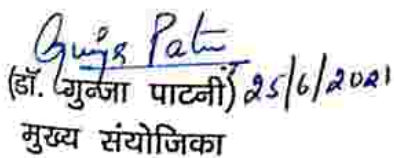 Gunja Patni
(डॉ. गुन्जा पाटनी) 25/6/2021
मुख्य संयोजिका